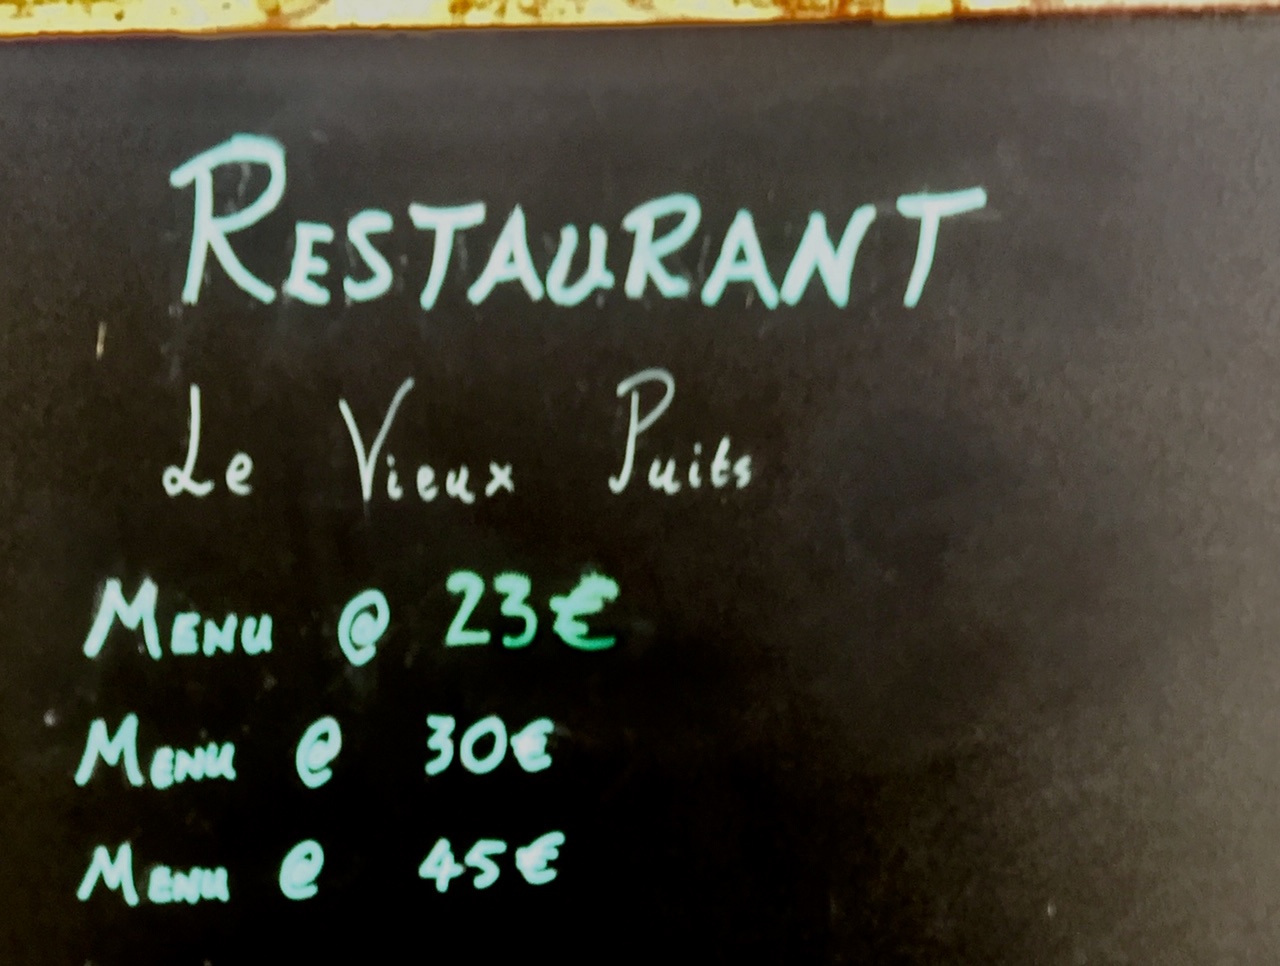 RESTAURANT
Le Vieux Puits
MENU @ 23€
MENU @ 30€
MENU @ 45€